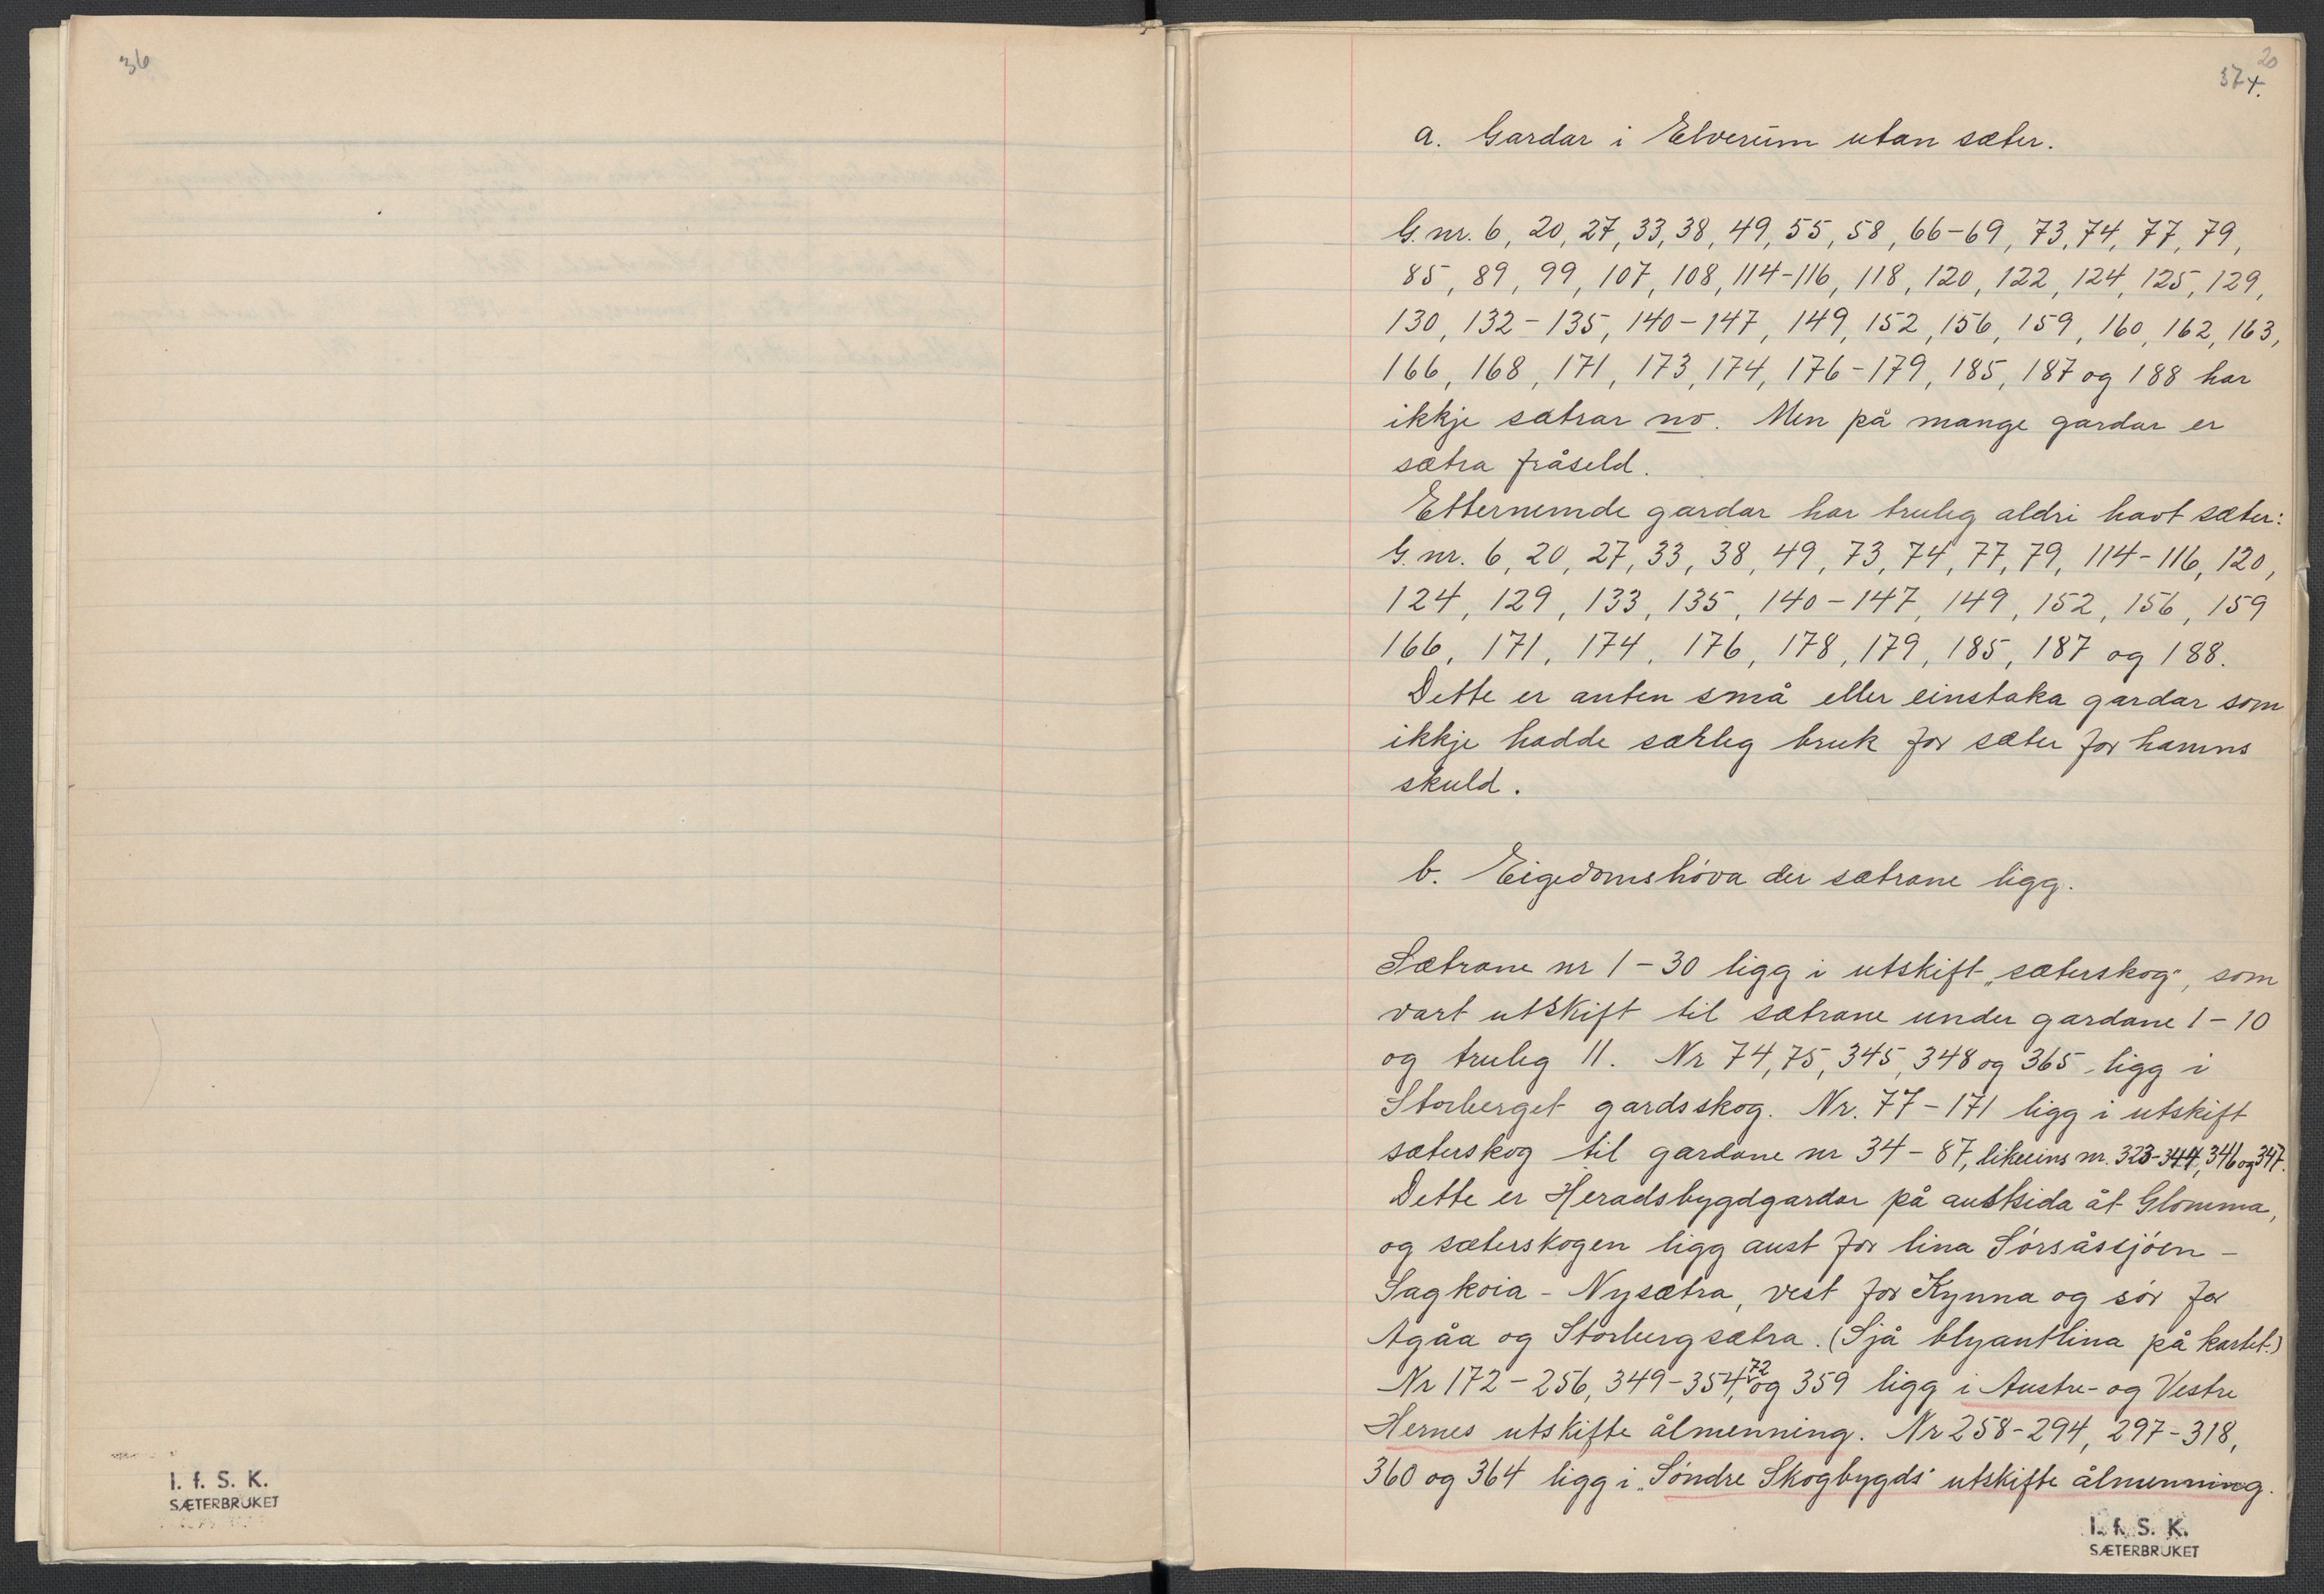 36
I. f. S. K.
SÆTERBRUKET
20
37 4.
a. Gardar i Elverum utan sæter.
G. nr. 6, 20, 27, 33, 38, 49, 55, 58, 66-69, 73, 74, 77, 79,
85, 89, 99, 107, 108, 114-116, 118, 120, 122, 124, 125, 129,
130, 132-135, 140-147, 149, 152, 156, 159, 160, 162, 163,
166, 168, 171, 173, 174, 176-179, 185, 187 og 188 har
ikkje sætrar no. Men på mange gardar er
sætra fråseld.
Etternemde gardar har truleg aldri havt sæter:
G. nr. 6, 20, 27, 33, 38, 49, 73, 74, 77, 79, 114-116, 120,
124, 129, 133, 135, 140-147, 149, 152, 156, 159
166, 171, 174, 176, 178, 179, 185, 187 og 188.
Dette er anten små eller einstaka gardar som
ikkje hadde særleg bruk for sæter for hamns
skuld.
b. Eigedomshøva der sætrane ligg.
Sætrane nr 1-30 ligg i utskift „sæterskog", som
vart utskift til sætrane under gardane 1-10
og truleg 11. Nr 74, 75, 345, 348 og 365 ligg i
Storberget gardsskog. Nr. 77-171 ligg i utskift
sæterskog til gardane nr 34-87, likeeins nr. 323-344, 346 og 347.
Dette er Heradsbygdgardar på austsida åt Glomma,
og sæterskogen ligg aust for lina Sørsåssjøen -
Sagkoia - Nysætra, vest for Kynna og sør for
Agåa og Storbergsætra. (Sjå blyantlina på kartet.)
Nr 172-256, 349-354, 72 og 359 ligg i Austre- og Vestre
Hernes utskifte ålmenning. Nr 258-294, 297-318,
360 og 364 ligg i „Søndre Skogbygds" utskifte ålmenning.
I. f. S. K.
SÆTERBRUKET